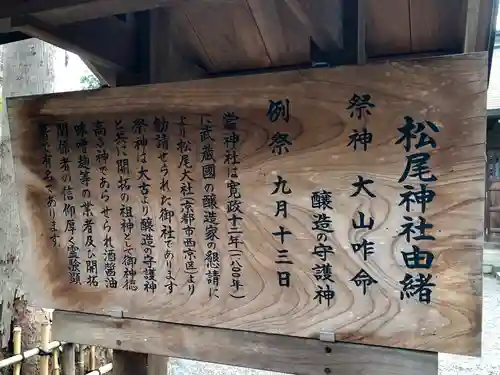 松尾神社由緒
祭神 大山咋命
醸造の守護神
例祭 九月十三日
当神社は寛政十二年(一八〇〇年)
に武蔵國の醸造家の懇請に
より松尾大社(京都市西京区)より
勧請せられた御社であります
祭神は太古より醸造の守護神
と共に開拓の祖神として御神徳
高き神であらせられ酒醤油
味噌麹等の業者及び開拓
関係者の信仰厚く霊験顕
著で有名であります